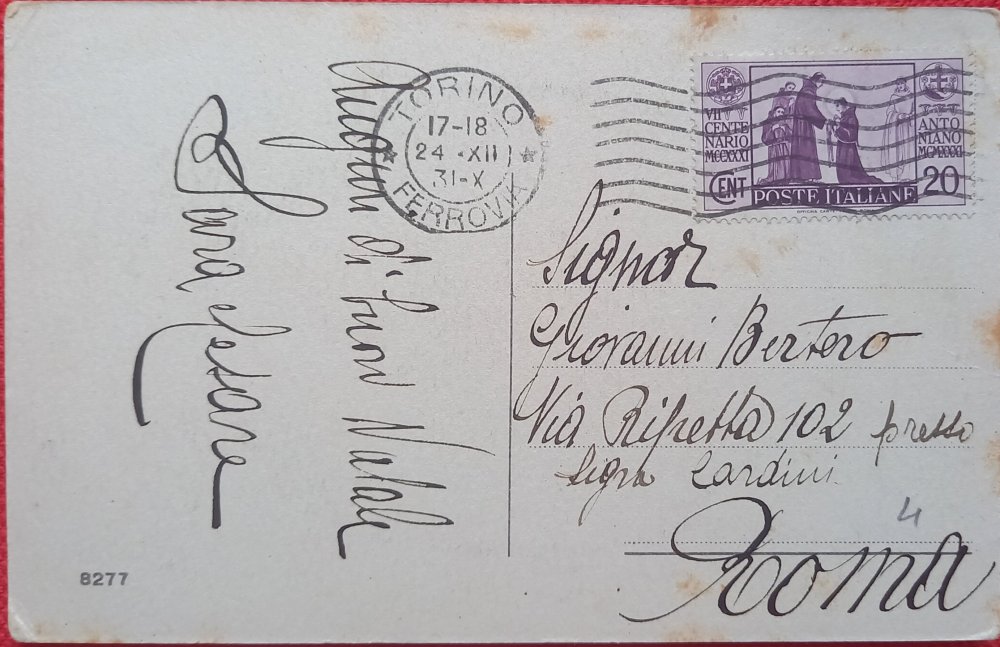 Auguri di buon Natale
Sara e Cesare
TORINO
17-18
24 · XII
31-X
FERROVIA
VII CENTENARIO
MCCXXXI
ANTONIANO
MCMXXXI
CENT
20
POSTE ITALIANE
Signor
Giovanni Bertero
Via Ripetta 102 presso
Sigra Lardini
4
Roma
8277